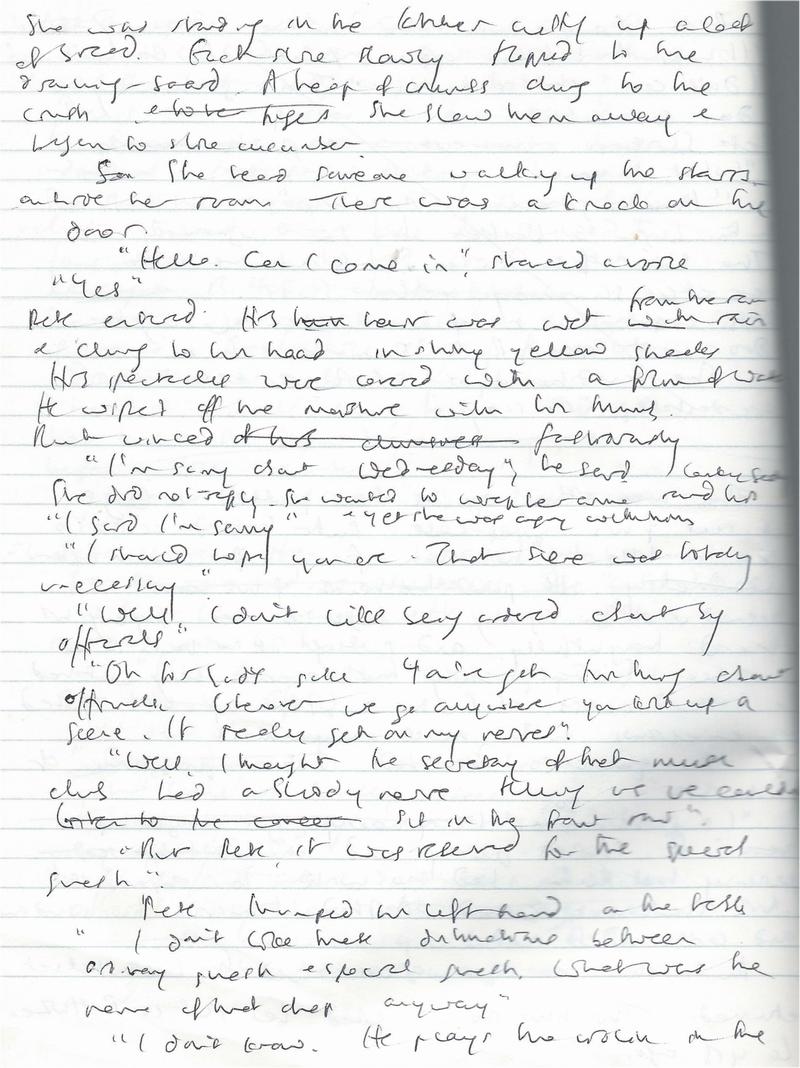 She was standing in the kitchen cutting up a loaf
of bread. Each slice slowly flopped to the
draining-board. A heap of crumbs clung to the
crust She blew them away &
began to slice cucumber.
She heard someone walking up the stairs
outside her room There was a knock on the
door.
"Hello. Can I come in", shouted a voice
"Yes"
Pete entered. His hair was wet from the rain
& clung to his head in shiny yellow
His spectacles were covered with a film of
He wiped off the moisture with his
winced
"I'm sorry about Wednesday", he said
She did not reply. She wanted to her arms round his
"I said I'm sorry" & yet she was angry with him
"I should hope you are. That scene was totally
unecessary"
"Well, I don't like being ordered about by
officials"
"Oh for God's sake You've got this thing about
officials. Wherever we go anywhere you kick up a
scene. It really gets on my nerves".
"Well, I thought the secretary of that music
club had a bloody nerve telling us we couldn't
sit in the front row".
"But Pete, it was reserved for the special
guests".
Pete thumped his left hand on the table
"I don't like these distinctions between
ordinary guests & special guests. What was the
name of that chap anyway"
"I don't know. He plays the violin in the